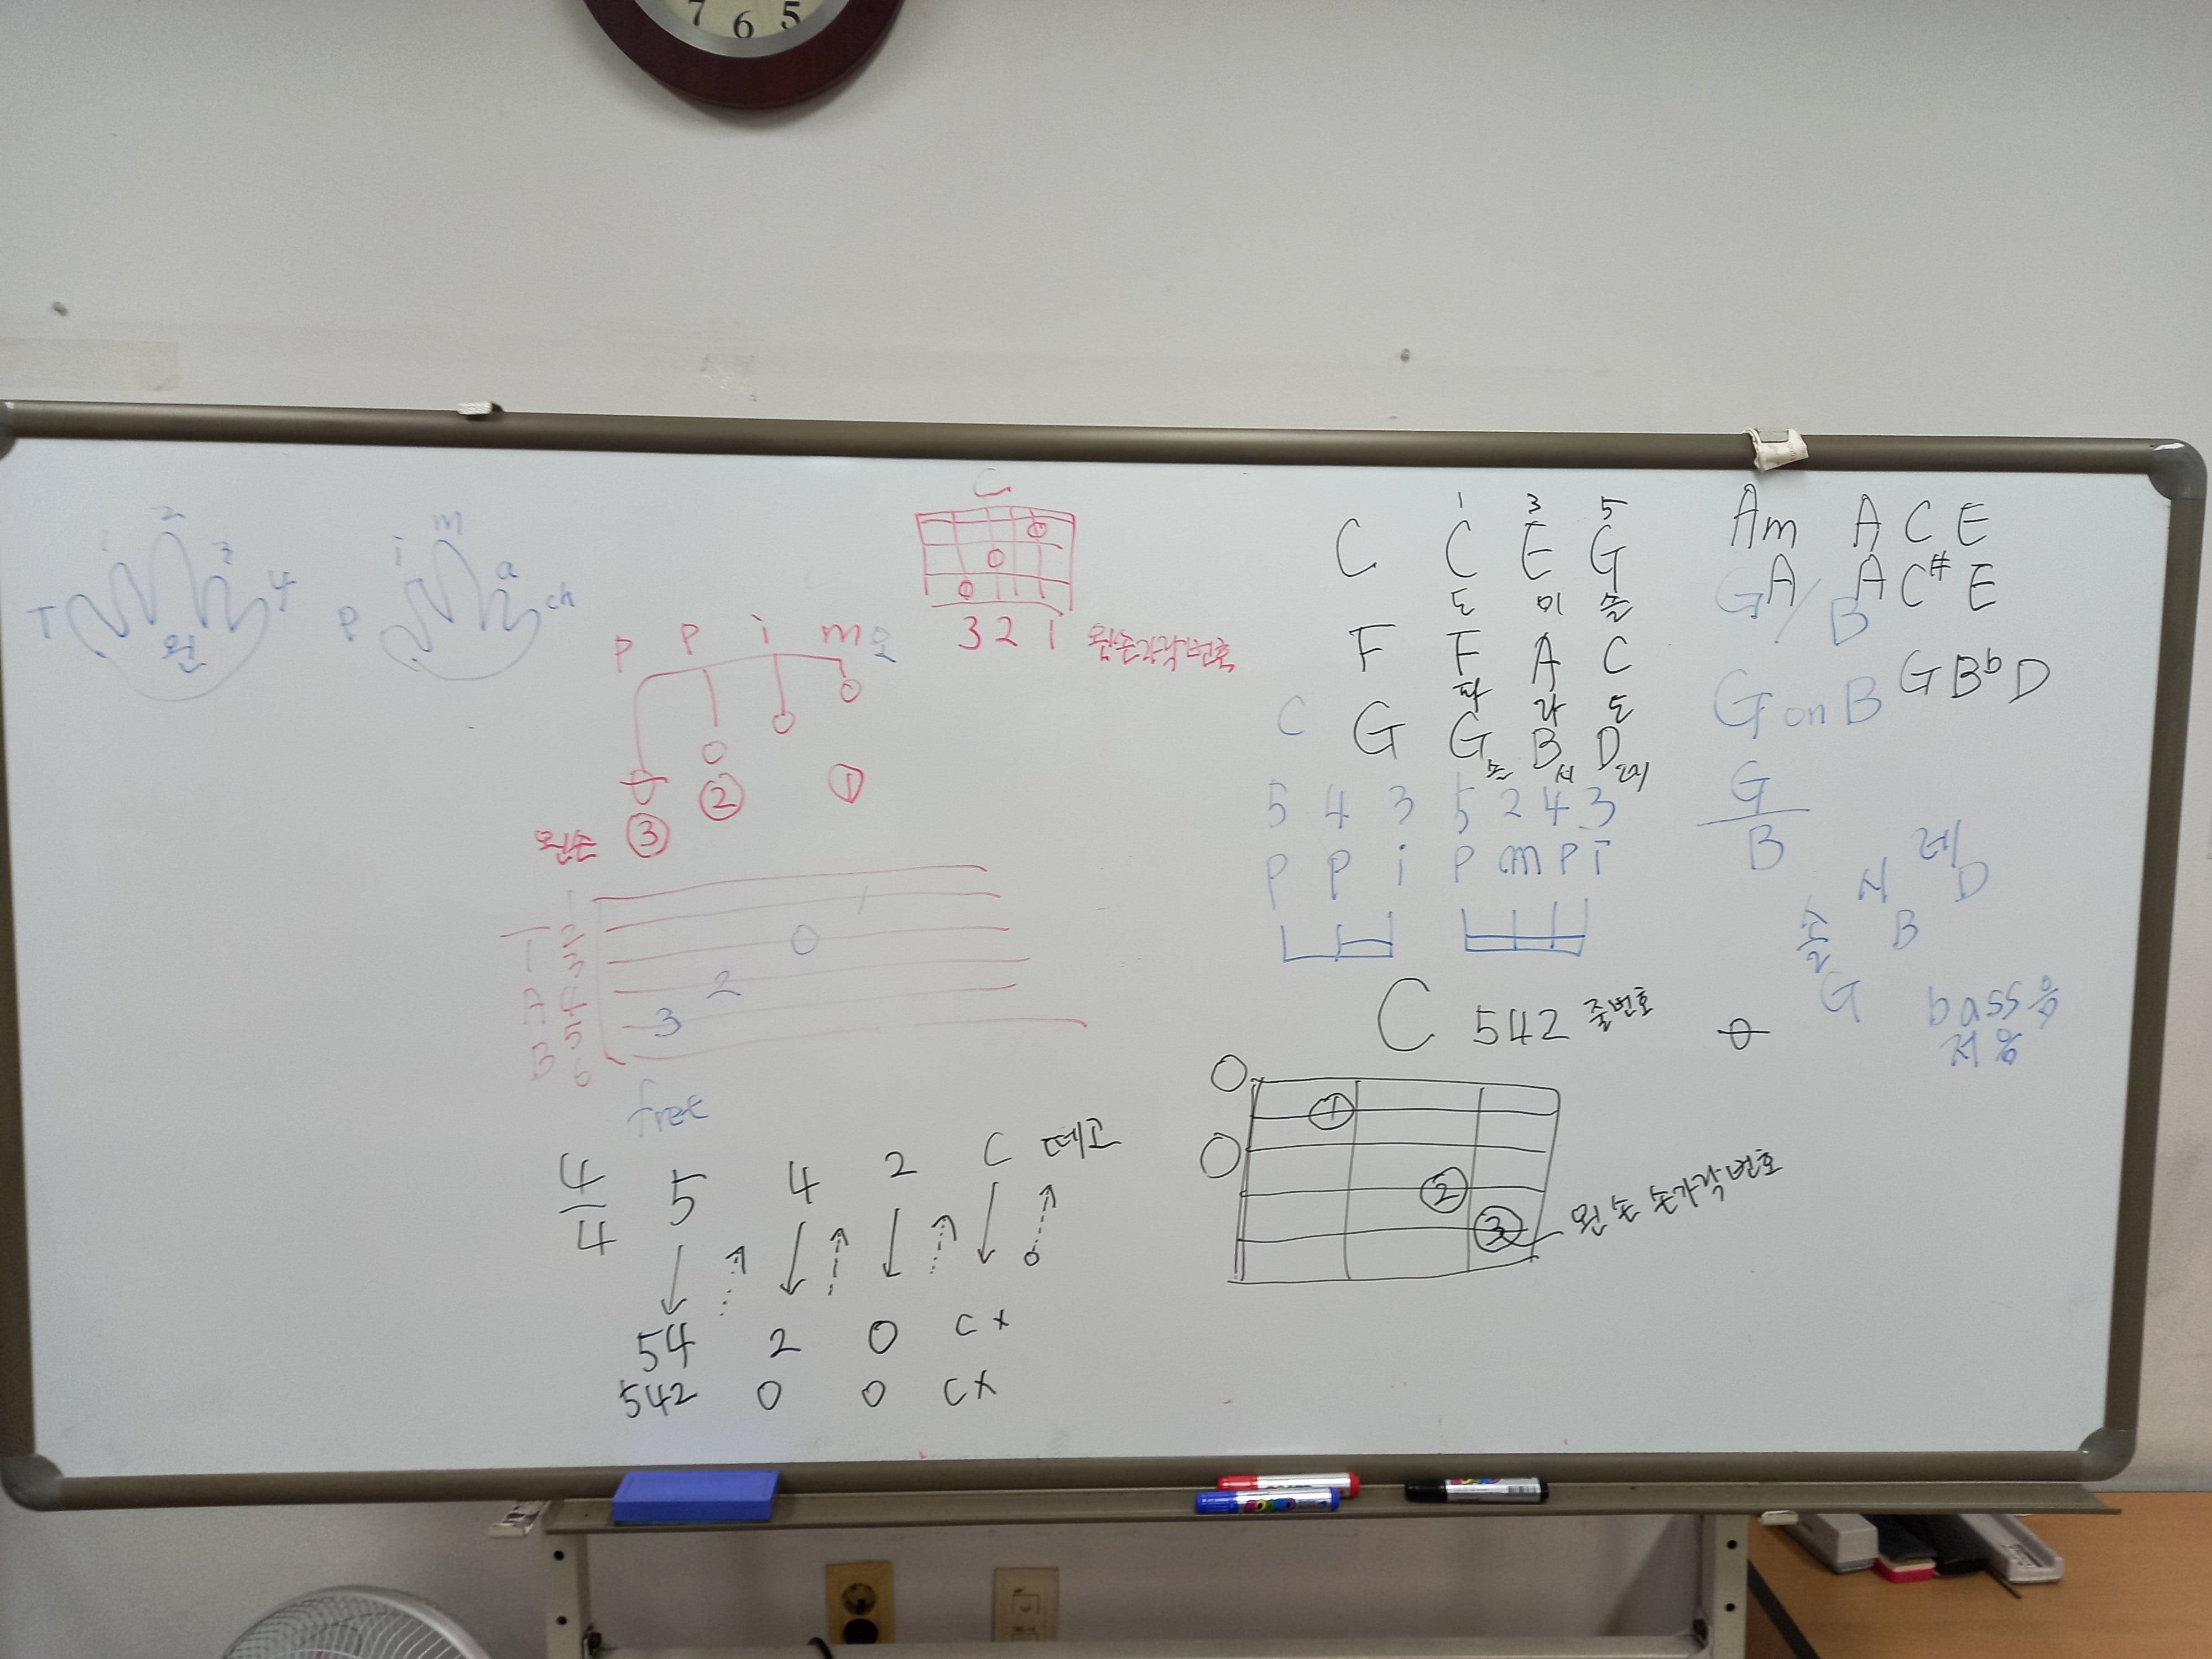 7 6 5
T 1 2 3 4
왼
P i m a ch
C
3 2 1 왼손가락번호
P P i m 오
② ①
왼손 ③
1
T 2
3
A 4
5
B 6
1
0
2
3
fret
4/4 5 4 2 C 떼고
54 2 0 C x
542 0 0 C x
1 3 5
C C E G
도 미 솔
F F A C
파 라 도
C G G B D
솔 시 레
5 4 3 5 2 4 3
P P i P m P i
C 542 줄번호
0
0
①
②
③
왼손 손가락번호
Am A C E
A A C# E
G/B
G on B G Bb D
G
B
솔 시 레
G B D
bass음
저음